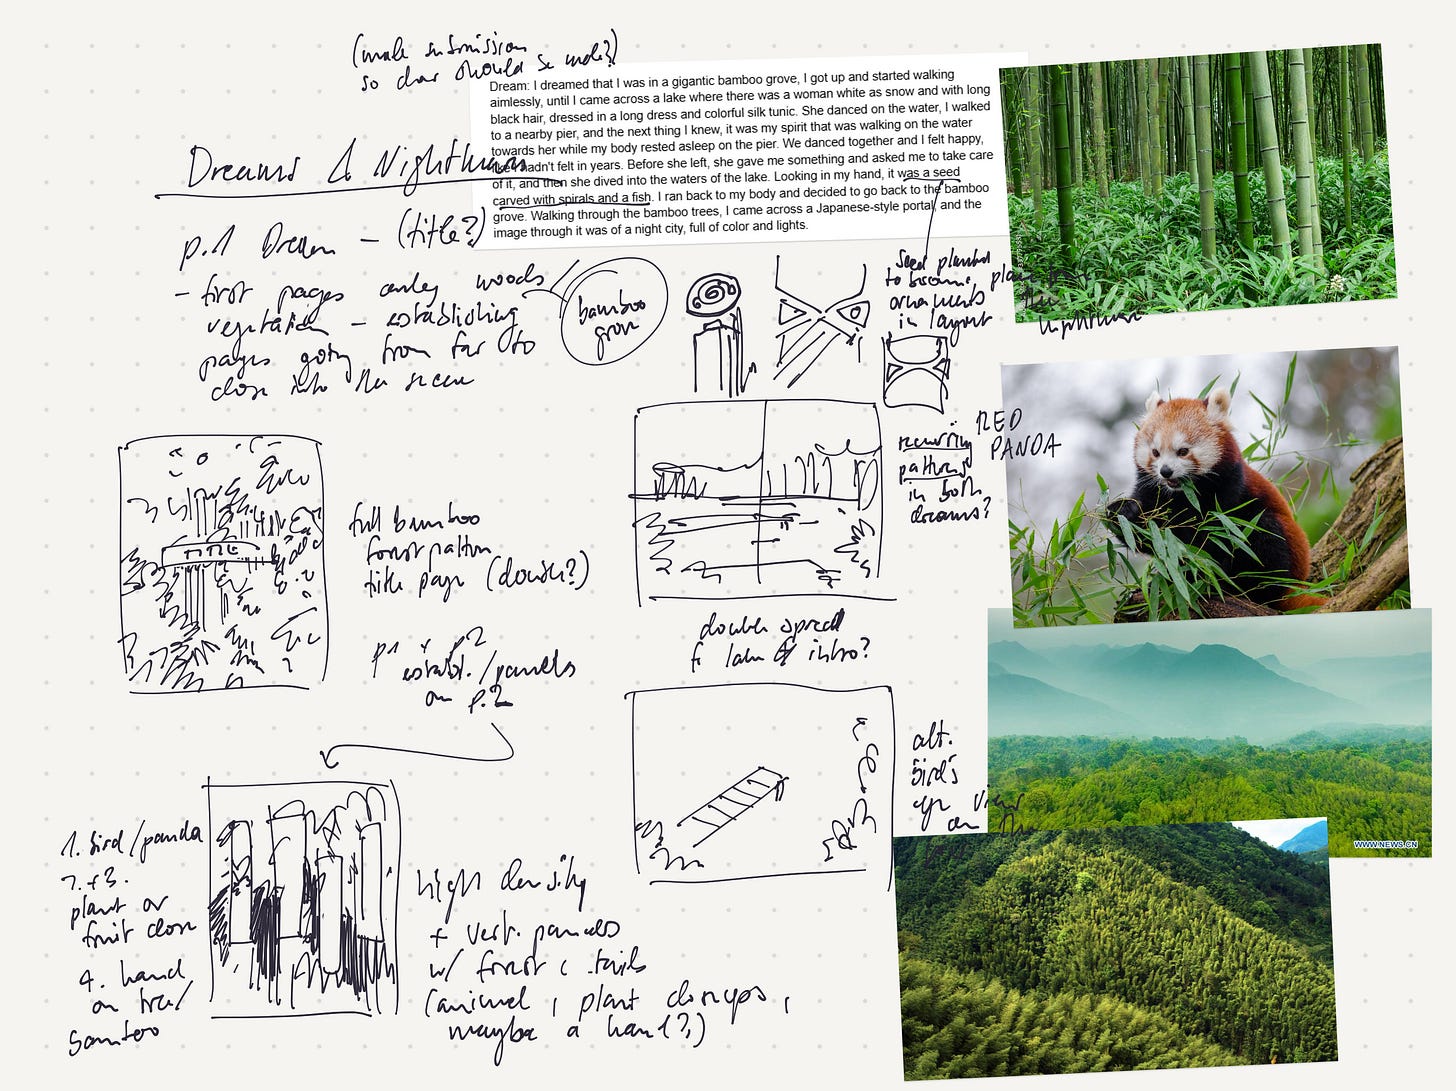 (male submission
so char should be male?)
Dream: I dreamed that I was in a gigantic bamboo grove, I got up and started walking
aimlessly, until I came across a lake where there was a woman white as snow and with long
black hair, dressed in a long dress and colorful silk tunic. She danced on the water, I walked
to a nearby pier, and the next thing I knew, it was my spirit that was walking on the water
towards her while my body rested asleep on the pier. We danced together and I felt happy,
like I hadn't felt in years. Before she left, she gave me something and asked me to take care
of it, and then she dived into the waters of the lake. Looking in my hand, it was a seed
carved with spirals and a fish. I ran back to my body and decided to go back to the bamboo
grove. Walking through the bamboo trees, I came across a Japanese-style portal, and the
image through it was of a night city, full of color and lights.
Dreams & Nightmares
p.1 Dream – (title?)
- first pages only woods
vegetation – establishing
pages going from far to
close into the scene
bamboo
grove
Seed planted
to become
ornaments
in layout
recurring
patterns
in both
dreams?
RED
PANDA
TITLE
full bamboo
forest pattern
title page (double?)
p1 + p2
establ./panels
on p.2
double spread
f lake & intro?
alt.
bird's
eye view
1. bird/panda
2.+3.
plant or
fruit close
4. hand
on tree/
bamboo
high density
+ vert. panels
w/ forest
(animal, plant closeups,
maybe a hand?)
WWW.NEWS.CN